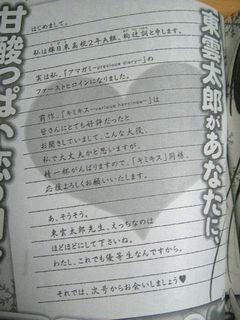 東雲太郎があなたに
はじめまして。
私は輝日東高校2年A組、絢辻詞と申します。
実は私、『アマガミ-precious diary-』の
ファーストヒロインになりました。
前作、『キミキス-various heroines-』は
皆さんにとても好評だったと
お聞きしていまして、こんな大役、
私で大丈夫かと思いますが、
精一杯がんばりますので、『キミキス』同様、
応援よろしくお願いいたします。
あ、そうそう。
東雲太郎先生、えっちなのは
ほどほどにして下さいね。
わたし、これでも優等生なんですから。
それでは、次号からお会いしましょう♥
甘酸っぱい恋